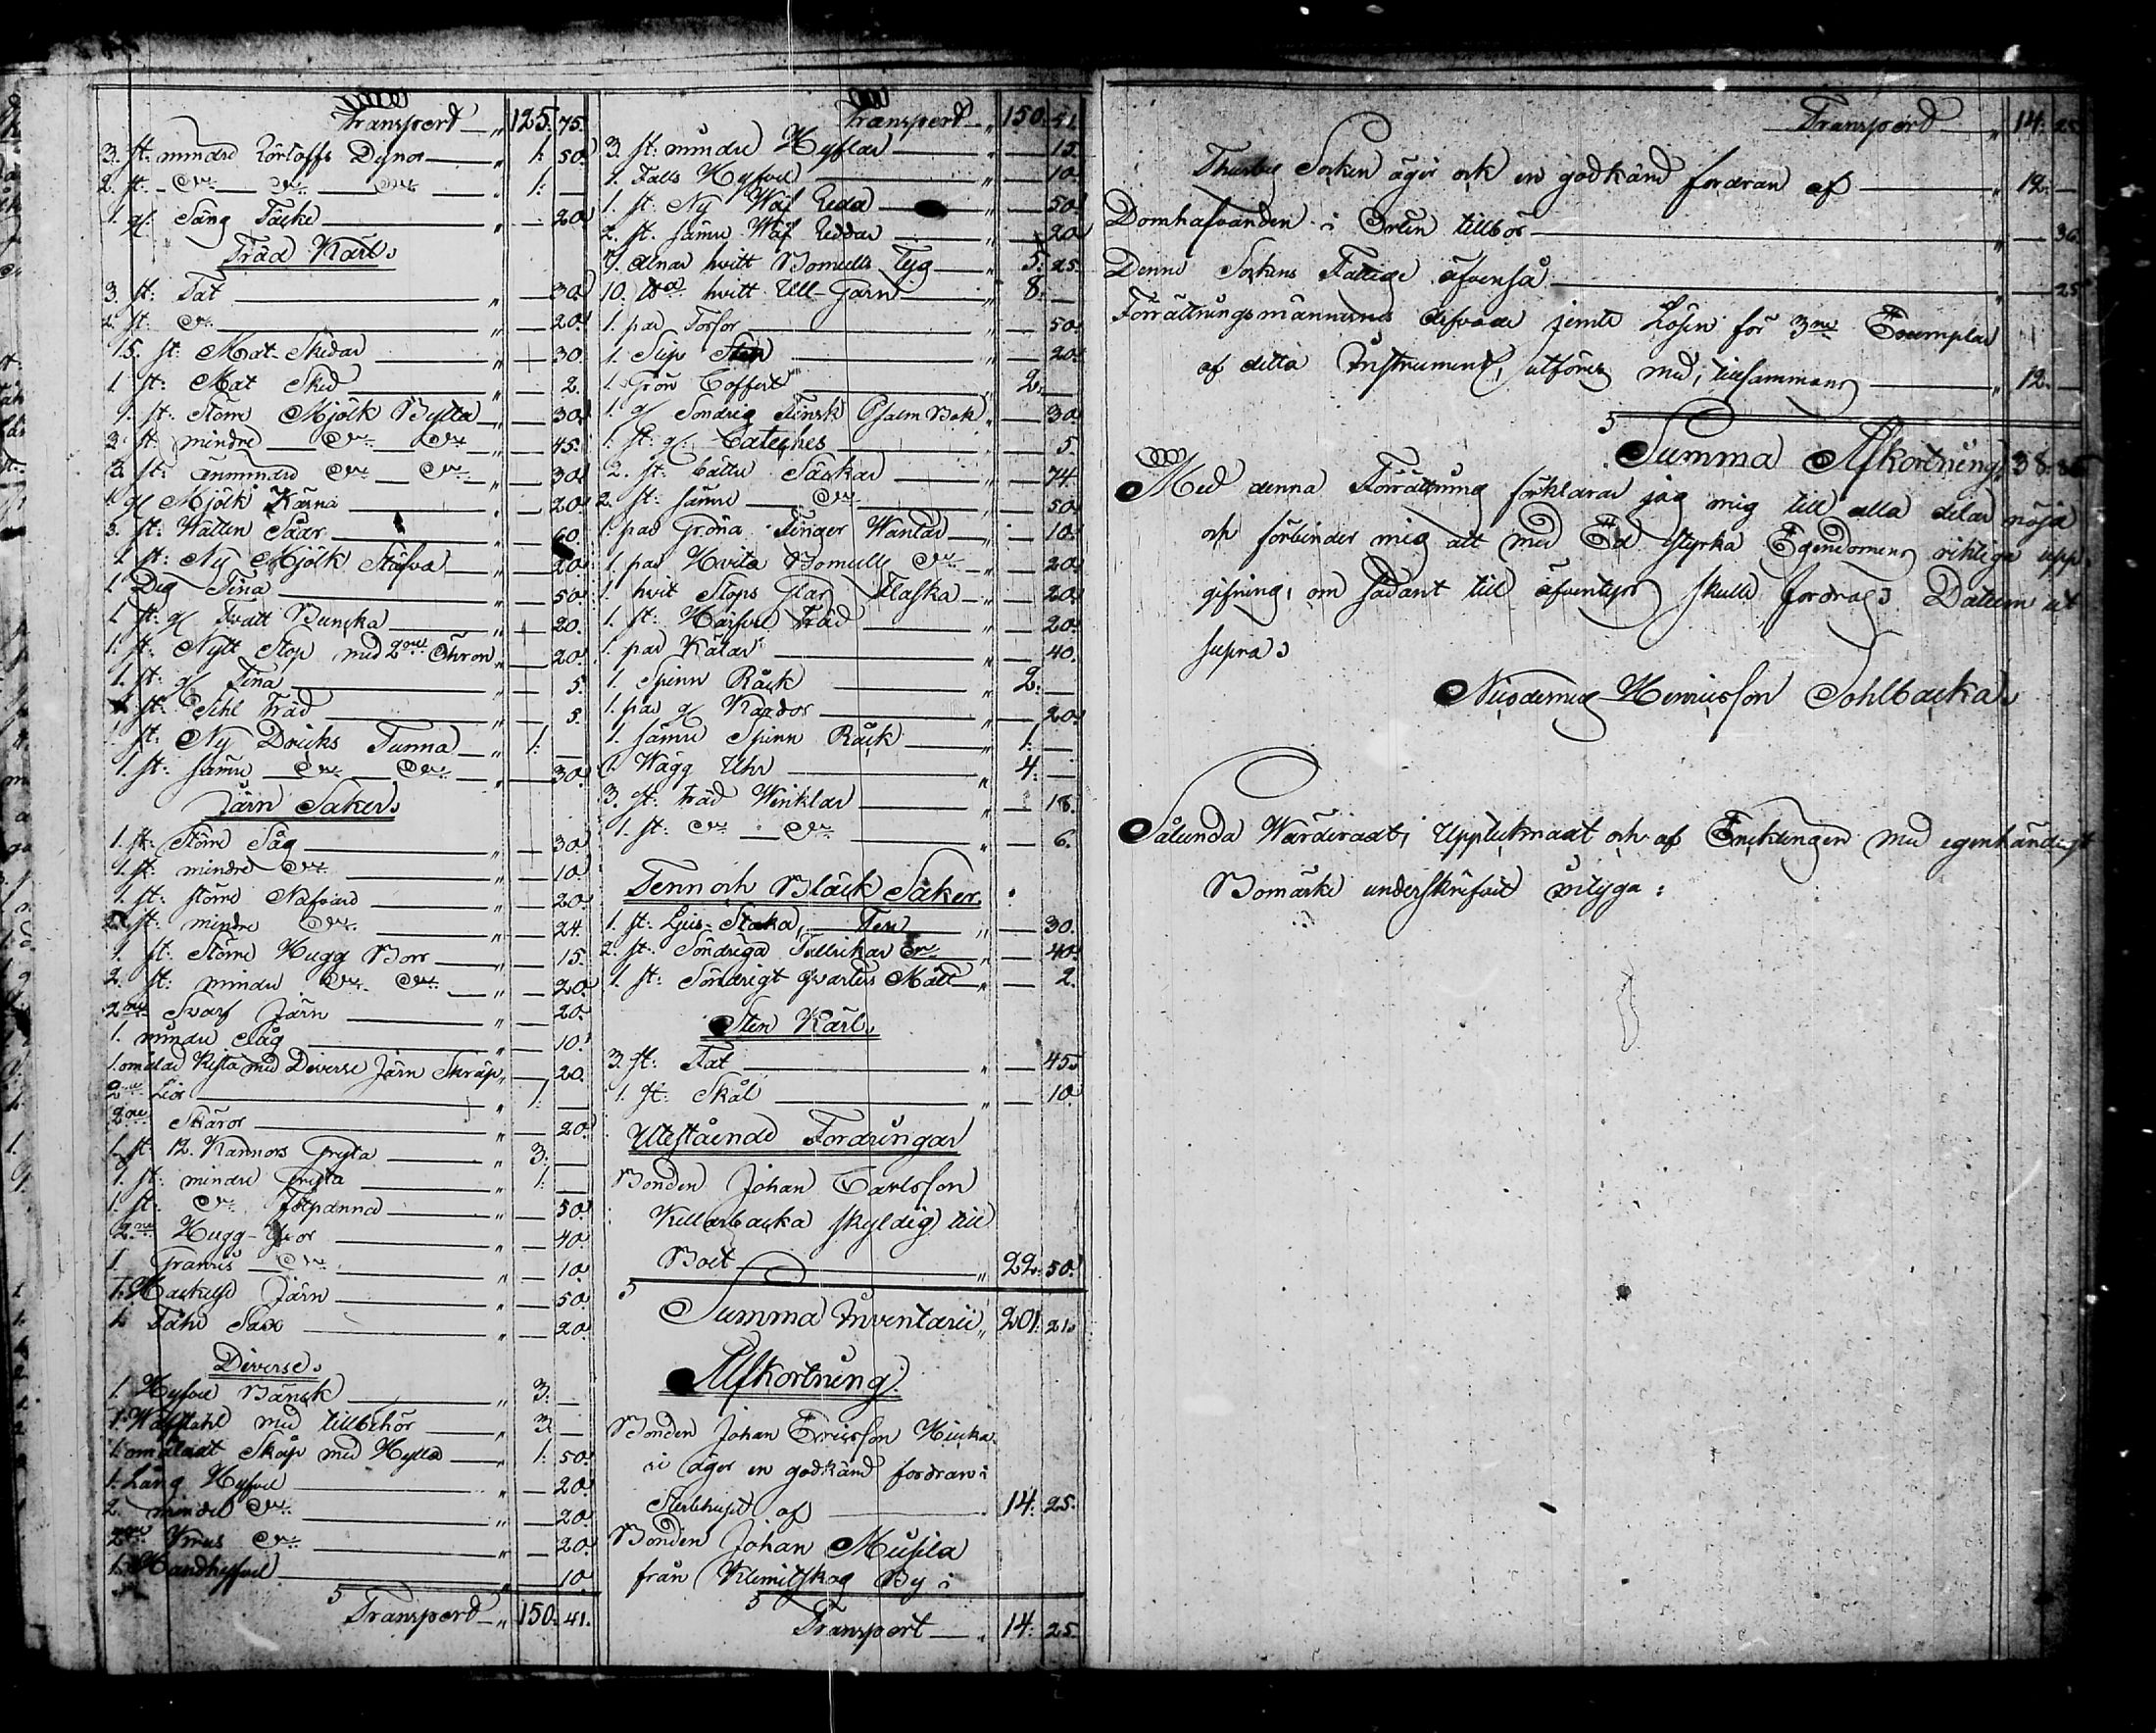 Transport „ 125. 75.
3. st: mindre Dynor „ 1: 50.
2. st. D:o D:o D:o „ 1: —
1. gl. Säng Täcke „ — 20.
Träd Kärl.
3. st: Fat „ — 30.
2. st: D:o „ — 20.
15. st: Mat-Skedar „ — 30.
1 st: Mat Sked „ — 2.
1. st: Större Mjölk Bytta „ — 30.
3. st: mindre D:o D:o „ — 45.
3. st: ännmindre D:o D:o „ — 30.
1. gl Mjölk Kärna „ — 20.
3. st: Watten Såar „ — 60.
1. st: Ny Mjölk Stäfva „ — 20.
1 Deg Tina „ — 50.
1 st: gl Tvätt Buncka „ — 20.
1. st: Nytt Stop med 2:ne Öhron „ — 20.
1. st: gl Tina „ — 5.
1 st: Sihl Träd „ — 5.
1 st: Ny Dricks Tunna „ 1: —
1. st: sämre D:o D:o „ — 30.
Järn Saker.
1. st: Större Såg „ — 30.
1. st: mindre D:o „ — 10.
1. st: större Nafvare „ — 20.
2. st: mindre D:o „ — 24.
1. st: Större Hugg Borr „ — 15.
2. st: mindre D:o D:o „ — 20.
2:ne Svarf Järn „ — 20.
1. mindre Såg „ — 10.
1. omålad Kista med Diverse Järn Skräp „ — 20.
2:ne Liar „ 1: —
2:ne Skäror „ — 20.
1. st: 12. Kannors Gryta „ 3: —
1. st: mindre Gryta „ 1: —
1. st: D:o Fotpanna „ — 50.
2:ne Hugg-Yxor „ — 40.
1 D:o „ — 10.
1. Hackelse Järn „ — 50.
1. Fåhr Sax „ — 20.
Diverse.
1. Hyfvel Bänck „ 3: —
1. Wäfstahl med tillbehör „ 3: —
1. omåladt Skåp med Hylla „ 1: 50.
1. Lång Hyfvel „ — 20.
2. mindre D:o „ — 20.
2:ne D:o „ — 20.
1. Handhyfvel „ — 10.
Transport „ 150. 41.
Transport „ 150. 41.
3. st: mindre Hyflar „ — 15.
1. Falls Hyfvel „ — 10.
1. st: Ny Wäf Reda „ — 50.
2. st. sämre Wäf Reddar „ — 20.
7. alnar hvitt Bomulls Tyg „ 5: 25.
10. hvitt Ull-Garn „ 8: —
1. par „ — 50.
1. Slip Sten „ — 20.
1. Grön Coffert „ 2: —
1. gl Söndrig Finsk Psalm Bok „ — 30.
1. st: gl: Cateches „ — 5.
2. st. bättre Säckar „ — 74.
2. st: sämre D:o „ — 50.
1. par Gröna Finger Wantar „ — 10.
1. par Hvita Bomulls D:o „ — 20.
1. hvit Stops Glas Flaska „ — 20.
1. st: Härfvel Träd „ — 20.
1. par Kälar „ — 40.
1. Spinn Råck „ 2: —
1. par gl Kardor „ — 20.
1. sämre Spinn Råck „ 1: —
1. Wägg Uhr „ 4: —
3. st: träd Winklar „ — 18.
1. st: D:o D:o „ — 6.
Tenn och Bläck Saker.
1. st: Ljus-Staka, Ten „ — 30.
2. st: Söndriga Tallrikar D:o „ — 40.
1. st: Söndrigt qvarters Mått „ — 2.
Sten Kärl.
3. st: Fat „ — 45.
1. st: Skål „ — 10.
Utestående Fordringar
Bonden Johan Carlsson
Killarbacka skyldig till
Boet „ 22: 50.
Summa Inventarii „ 201: 21.
Afkortning.
Bonden Johan Ericsson
äger en godkänd fordran i
Sterbhuset af 14: 25.
Bonden Johan Musila
från Klemitskog By i
Transport „ 14: 25.
Transport „ 14: 25.
Thusby Socken äger ock en godkänd fordran af „ 12: —
Domhafvanden i Orten tillbör „ — 36.
Denne Sockens Fattige äfvenså „ — 25
Förrättningsmännernes arfvode jemte Lösen för 3:ne Exemplar
af detta Instrument, utföres med, tillsammans „ 12: —
Summa Afkortning „ 38: 86
Med denna Förrättning förklarar jag mig till alla delar nöjd
och förbinder mig att med Ed styrka Egendomens riktiga upp-
gifning, om sådant till äfventyrs skulle fordras. Datum ut
supra.
Nicodemus Henricsson Sohlbacka.
Sålunda Wärderadt, Upptecknadt och af Encklingen med egenhändigt
Bomärke underskrifvit intyga: